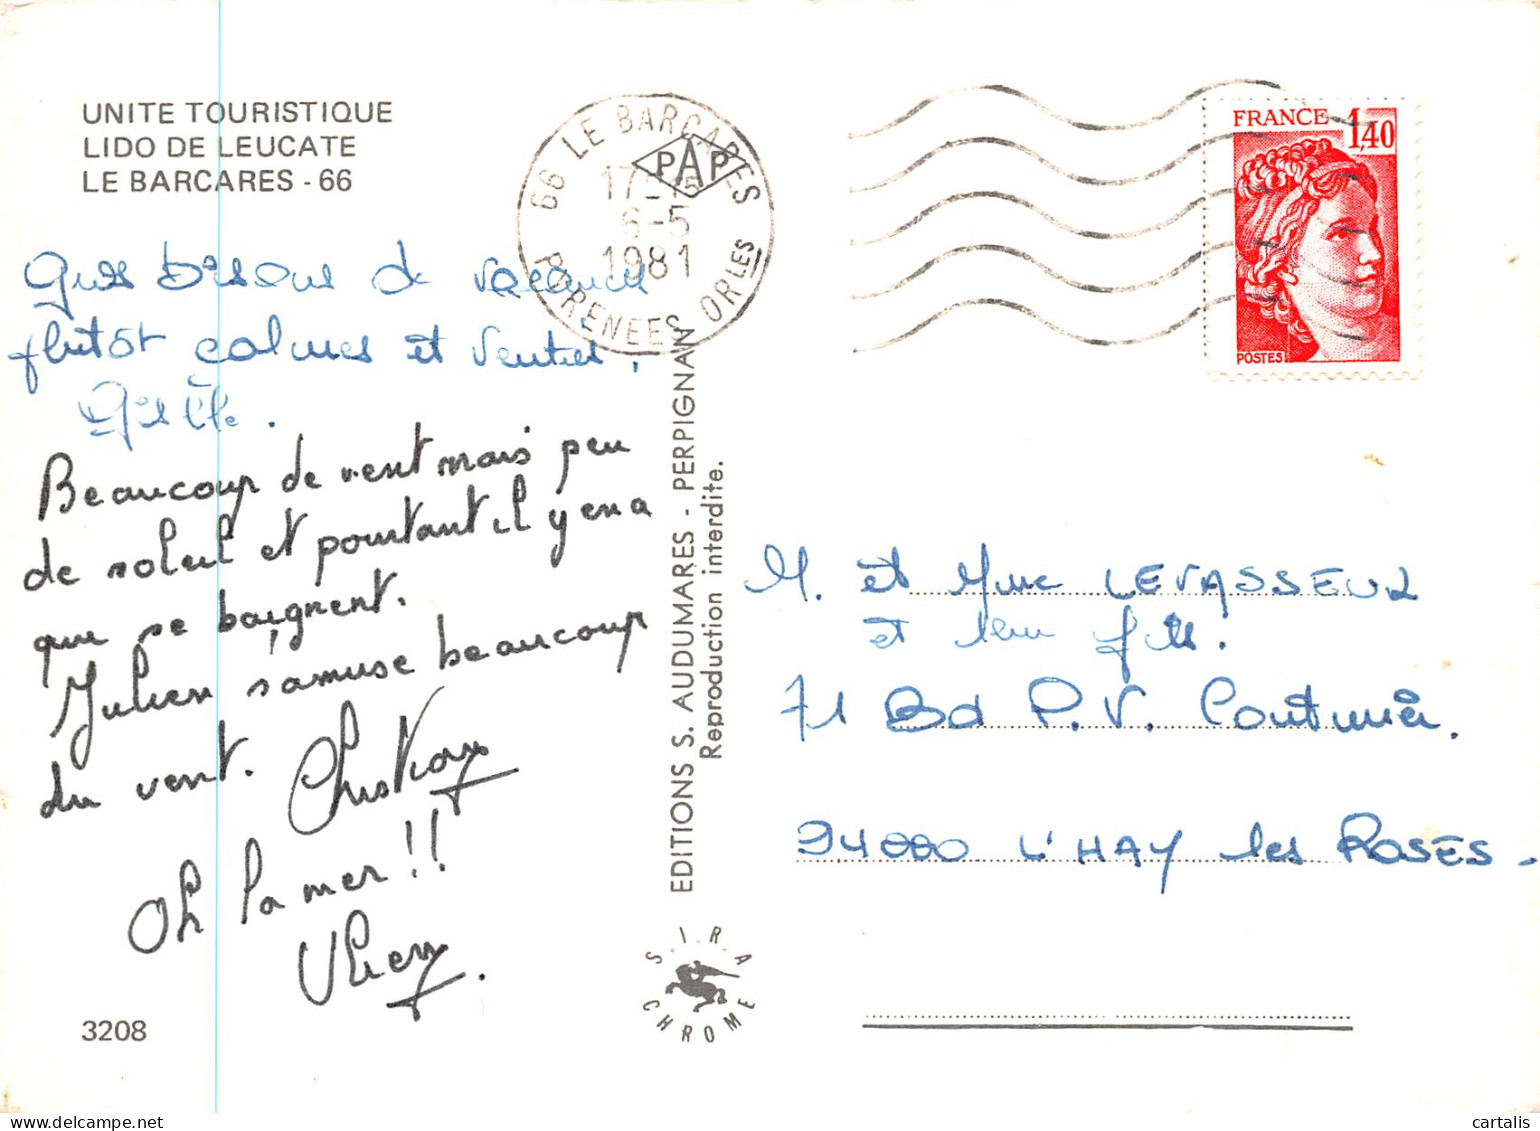 UNITE TOURISTIQUE
LIDO DE LEUCATE
LE BARCARES - 66
Gros bisous de vacances
plutôt calmes et ventées.
Gisèle.
Beaucoup de vent mais peu
de soleil et pourtant il y en a
qui se baignent.
Julien s'amuse beaucoup
du vent.
Oh la mer!!
3208
66 LE BARCARES
PAP
6-5
1981
PYRENEES ORLES
EDITIONS S. AUDUMARES - PERPIGNAN
Reproduction interdite.
S.I.R.A
CHROME
FRANCE 1,40
POSTES
M. et Mme LEVASSEUR
et leur fils.
71 Bd P.V. Couturier.
94000 L'HAY les ROSES.
cartalis